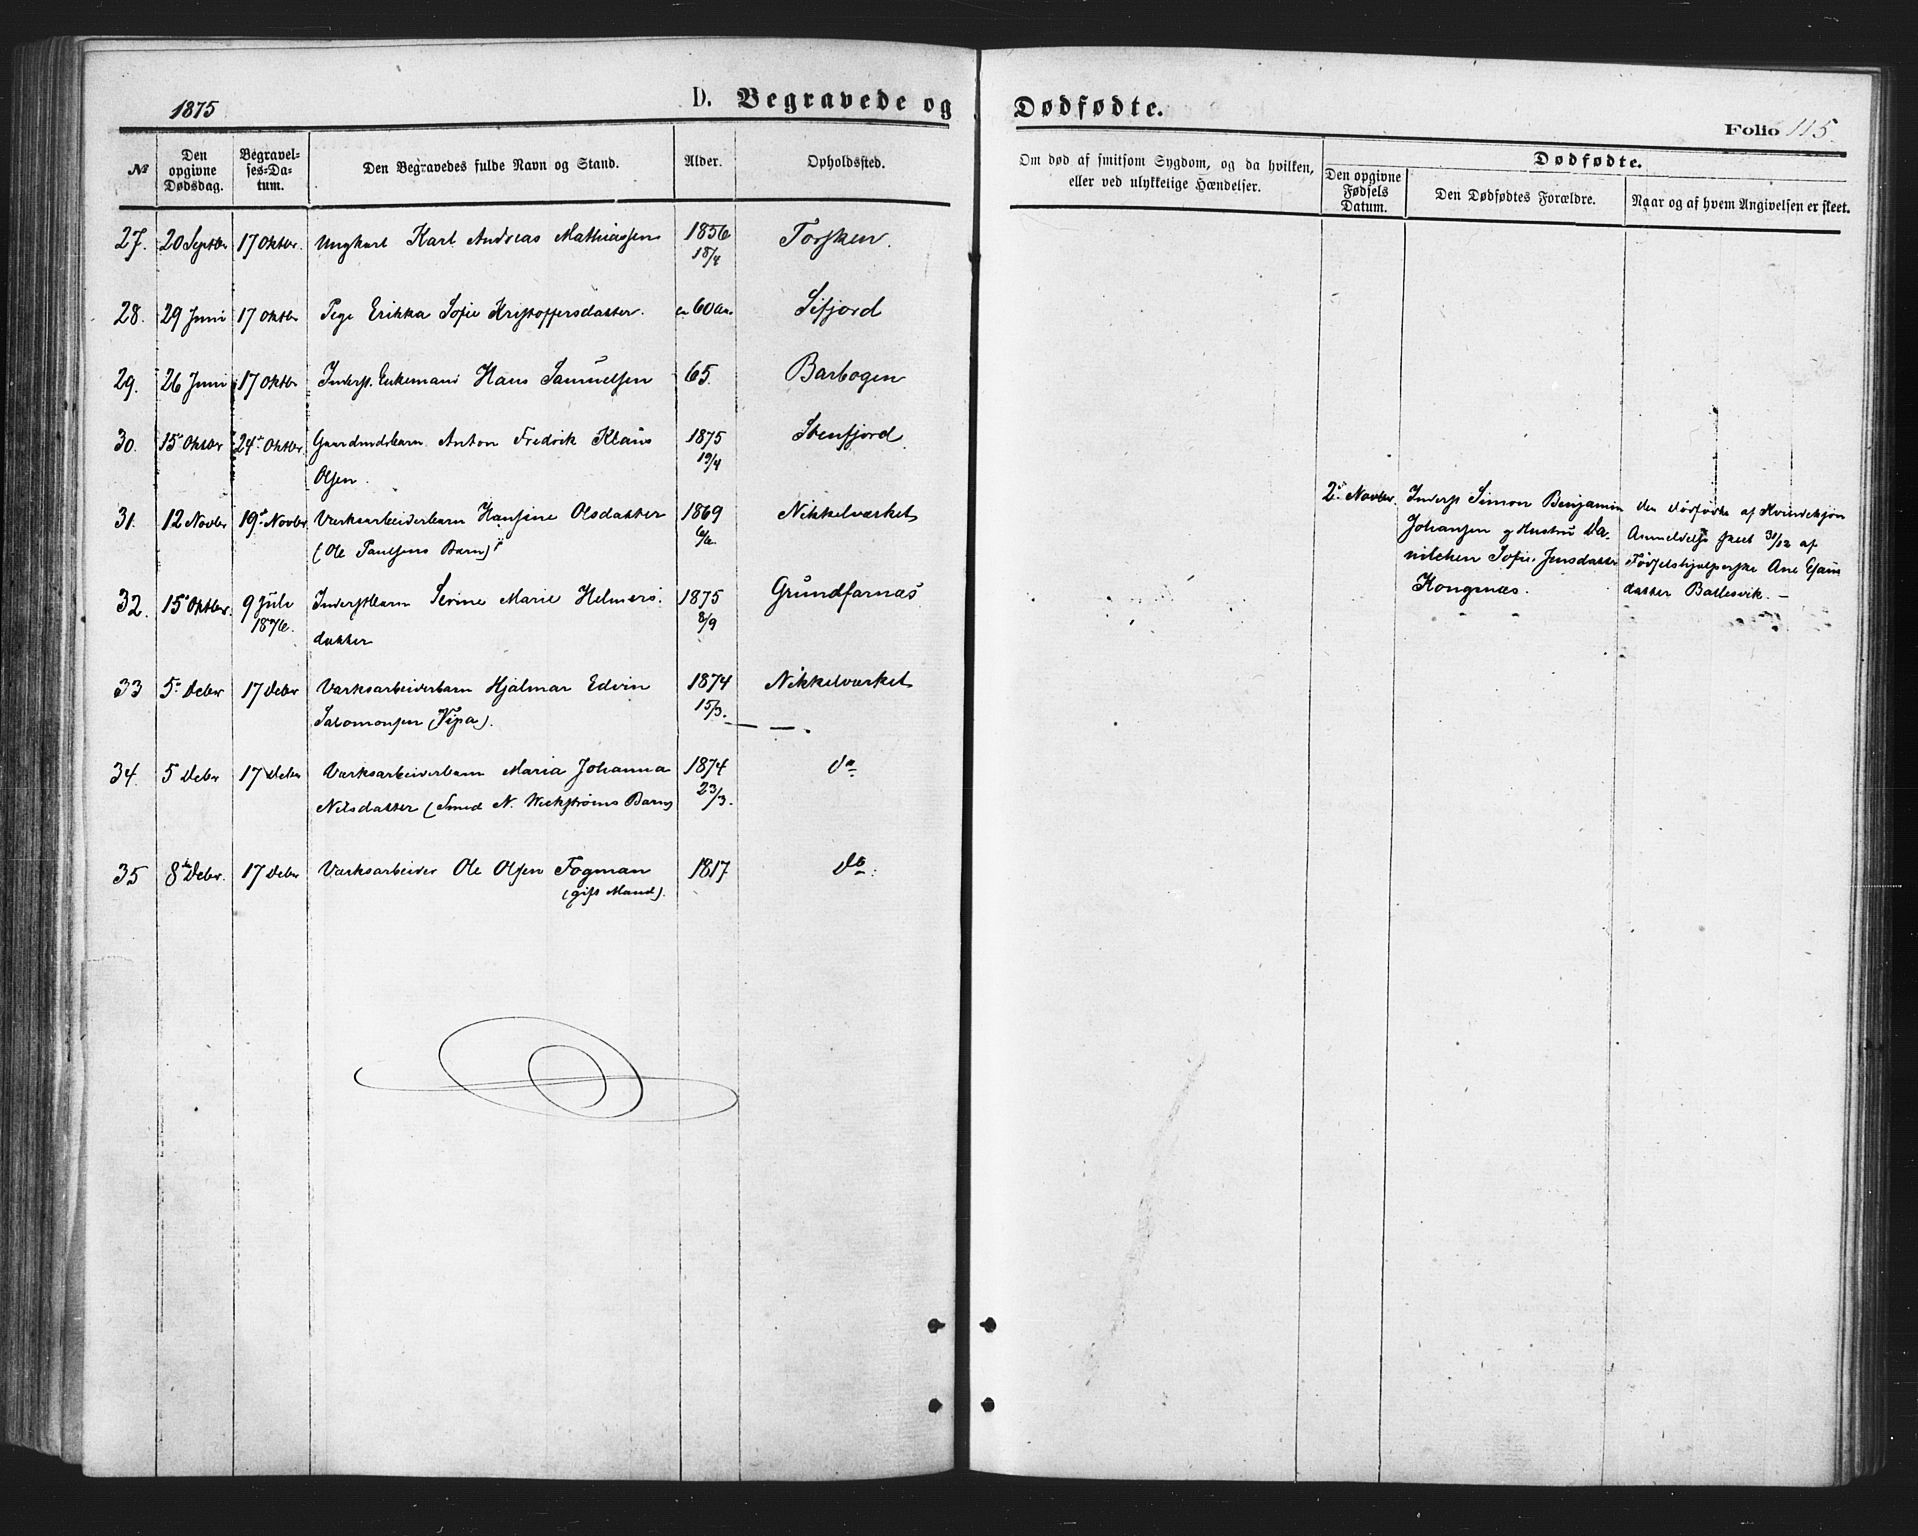 1875
D. Begravede og Dødfødte.
Folio 115
№ Den opgivne Dødsdag. Begravelses-Datum. Den Begravedes fulde Navn og Stand. Alder. Opholdssted. Om død af smitsom Sygdom, og da hvilken, eller ved ulykkelige Hændelser.
Dødfødte.
Den opgivne Fødsels Datum. Den Dødfødtes Forældre. Naar og af hvem Angivelsen er skeet.
27. 20 Septbr 17 Oktbr Ungkarl Karl Andreas Mathiassen 1856 Torsken.
18/4
28. 29 Juni 17 Oktbr Pige Erikka Sofie Kristoffersdatter. ca 60 Aar. Sifjord
29. 26 Juni 17 Oktbr Inderst. Enkemand Hans Samuelsen 65. Barbogen
30. 15 Oktbr 24 Oktbr Gaardmdsbarn Anton Fredrik Klaus 1875 Stenfjord
Olsen. 19/4
31. 12 Novbr 19 Novbr Værksarbeiderbarn Hansine Olsdatter 1869 Nikkelværket
(Ole Paulsens Barn)
32. 15 Oktbr. 9 Juli Inderstbarn Serine Marie Helmers- 1875 Grundfarnæs
1876. datter 8/9
33 5 Decbr 17 Decbr Værksarbeiderbarn Hjalmar Edvin 1874 Nikkelværket
Salomonsen (Vipa). 15/3.
34. 5 Decbr 17 Decbr Værksarbeiderbarn Maria Johanna 1874 do
Nilsdatter (Smed N. Weckstrøms Barn) 23/3.
35 8 Decbr. 17 Decbr Værksarbeider Ole Olsen Fogman 1817 do
(gift Mand).
2 Novbr. Inderst Simon Benjamin
Johansen og Hustru Da-
nilchen Sofie Jensdatter
Kongsnæs.
den dødfødte af Kvindekjøn
Anmeldelse skeet 31/12 af
Fødselshjælperske Ane Esaias
datter Ballesvik. —